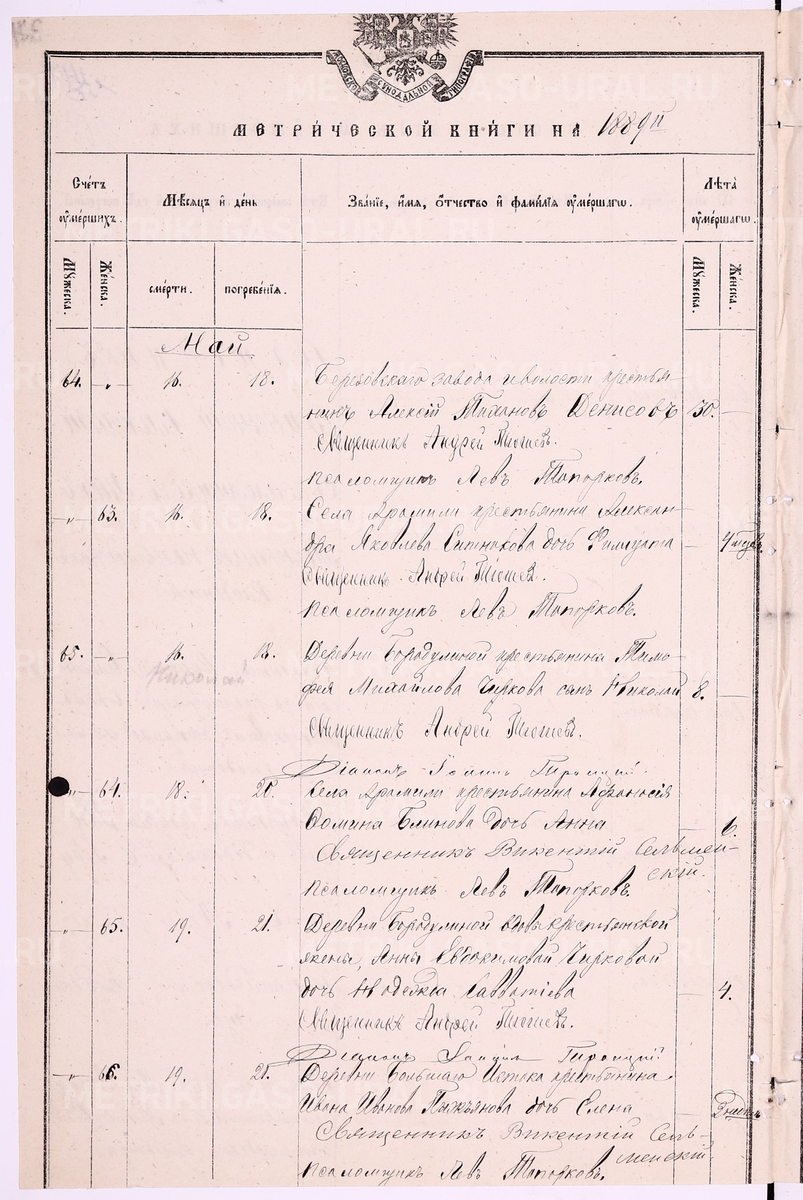 МОСКОВСКОЙ СѴНОДАЛЬНОЙ ТИПОГРАФІИ
МЕТРИ́ЧЕСКОЙ КНИ́ГИ НА 1889 г
Сче́тъ оу҆ме́ршихъ.
Мѣ́сяцъ и҆ де́нь
Зва́нїе, и҆́мя, ѻ҆́тчество и҆ фами́лїя оу҆ме́ршагѡ.
Лѣ́та оу҆ме́ршагѡ.
Мꙋ́жеска.
Же́нска.
сме́рти.
погребе́нїя.
Мꙋ́жеска.
Же́нска.
Май.
64. " 16. 18. Березовскаго завода и волости крестья-
нинъ Алексій Денисовъ 30.
Священникъ Андрей
псаломщикъ Левъ Топорковъ.
" 63. 16. 18. Села Арамили крестьянина Алексан-
дра Яковлева Ситникова дочь
Священникъ Андрей
псаломщикъ Левъ Топорковъ.
65. " 16. 18. Деревни Бородулиной крестьянина Тимо-
фея Михайлова Чиркова сынъ Николай 8.
Николай
Священникъ Андрей
Діаконъ Троицкій.
" 64. 18. 20. Села Арамили крестьянина Афанасія
Фомина Блинова дочь Анна 6.
Священникъ Викентій Сельмен-
скій.
псаломщикъ Левъ Топорковъ.
" 65. 19. 21. Деревни Бородулиной вдовы крестьянской
жены, Анны Евдокимовой Чирковой
дочь Савватіева 4.
Священникъ Андрей
Діаконъ Троицкій
" 66. 19. 21. Деревни Большаго Истока крестьянина
Ивана Иванова дочь Елена
Священникъ Викентій Сель-
менскій
псаломщикъ Левъ Топорковъ.